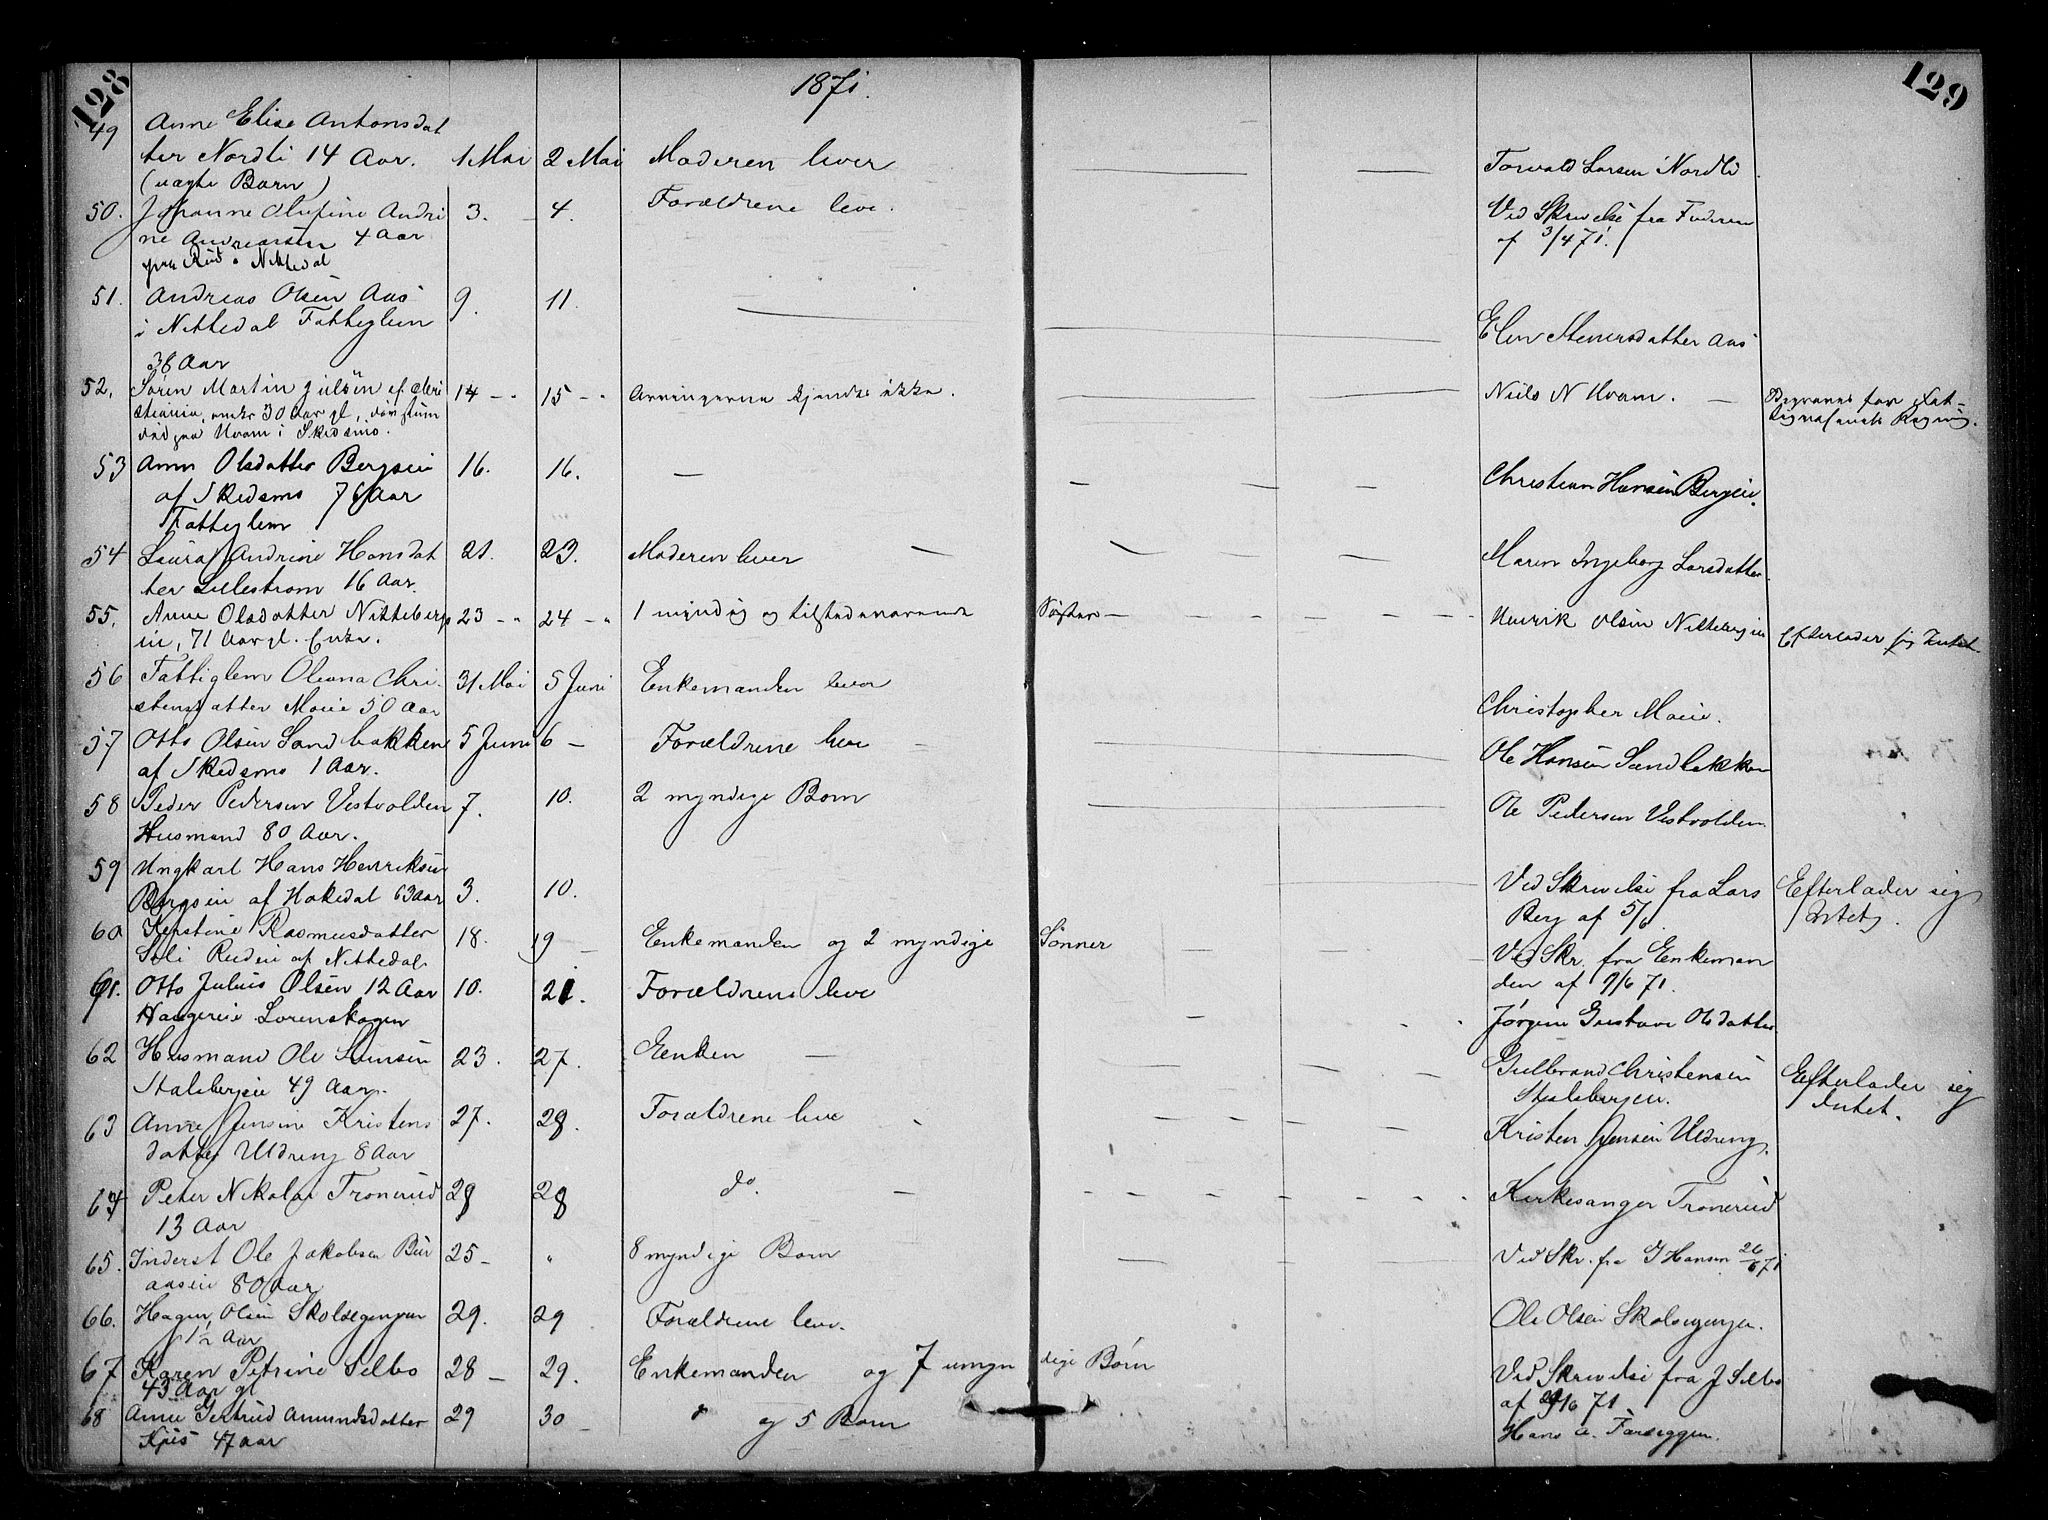 128
1871.
129
49 Anne Elise Antonsdat
ter Nordli 14 Aar. 1 Mai 2 Mai Moderen lever Torvald Larsen Nordli
(uægte Barn)
50. Johanne Andri 3. 4. Forældrene leve. Ved Skrivelse fra Faderen
ne Andreasen 4 Aar af 3/4 71.
fra Rud i Nittedal
51. Andreas Olsen Aas 9. 11.
i Nittedal Fattiglem Elen Stenersdatter Aas
38 Aar
52. Søren Martin Julsen af Chri 14 - " 15 - " Arvingerne kjendes ikke. Niels N Hvam. Begraves for Fat-
stiania, 30 Aar gl, døvstum tigvæsenets Regning.
død paa Hvam i Skedsmo.
53 Ann Olsdatter Bergeie 16. 16. Christian Hansen Bergeie.
af Skedsmo 76 Aar
Fattiglem
54 Laura Andrine Hansdat 21. 23. Moderen lever Maren Ingeborg Larsdatter.
ter Lillestrøm 16 Aar.
55. Anne Olsdatter Nitteberg 23 - " 24 - " 1 myndig og tilstedeværende Søster Henrik Olsen Nittebergeie
eie, 71 Aar gl. Enke. Efterlader sig Intet
56 Fattiglem Oleana Chri 31 Mai 5 Juni Enkemanden lever
stensdatter Moeie 50 Aar Christopher Moeie.
57 Otto Olsen Sandbakken 5 Juni 6 - Forældrene leve
af Skedsmo 1 Aar. Ole Hansen Sandbakken
58 Peder Pedersen Vestvolden 7. 10. 2 myndige Børn Ole Pedersen Vestvolden
Husmand 80 Aar.
59 Ungkarl Hans Henriksen Ved Skrivelse fra Lars Efterlader sig
Bergseie af Hakedal 63 Aar 3. 10. Berg af 5/6 Intet.
60 Kjerstine Rasmusdatter 18. 19 Enkemanden og 2 myndige Sønner Ved Skr. fra Enkeman
Seli Rudeie af Nittedal. den af 9/6 71.
61. Otto Julius Olsen 12 Aar 10. 21. Forældrene leve
Haugereie Lørenskogen Jørgine Gustava Olsdatter
62 Husmand Ole Simsen 23. 27. Enken Gulbrand Christensen Efterlader sig
Stalsbergeie 49 Aar. Stalsbergeie. Intet.
63 Anne Jensine Kristens 27. 28. Forældrene leve Kristen Jensen Uldreng.
datter Uldreng 8 Aar
64 Peter Nikolai Tronerud 28 28 do. Kirkesanger Tronerud
13 Aar
65. Inderst Ole Jakobsen Bu 25 - " 8 myndige Børn Ved Skr. fra G Hansen 26/6 71
aaseie 80 Aar
66. Hagen Olsen Skolsegengen 29. 29 Forældrene leve. Ole Olsen Skolsegengen.
1½ Aar
67 Karen Petrine Selbo 28 - 29. Enkemanden og 7 umyn dige Børn Ved Skrivelse fra J Selbo
43 Aar gl af 29/6 71
68 Anne Gertrud Amundsdatter 29 30 og 5 Børn Hans A.
47 Aar